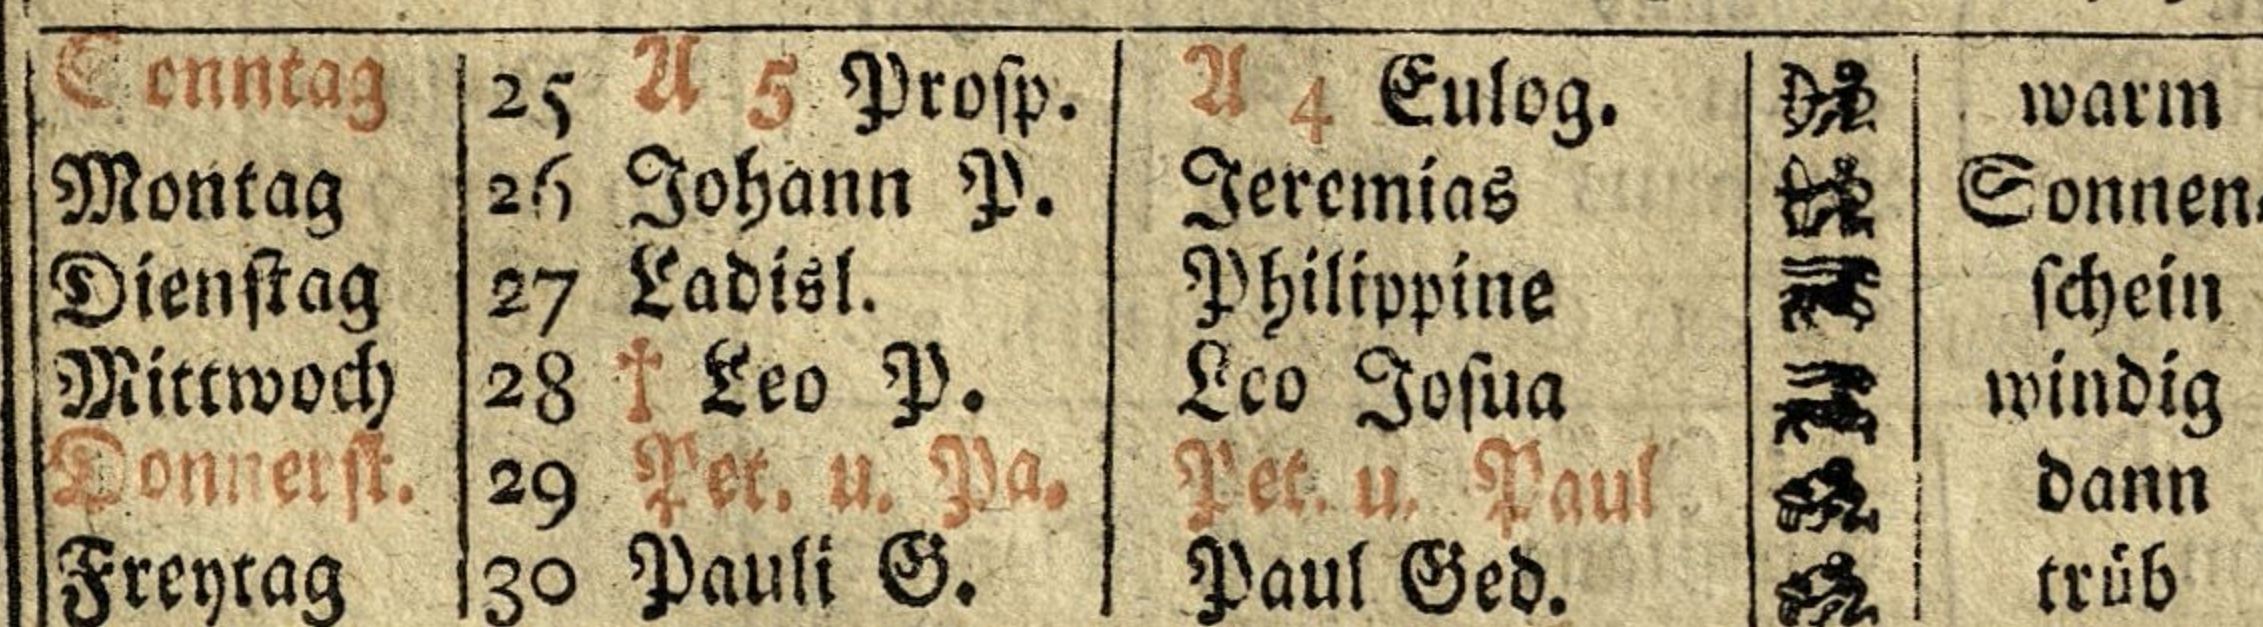 Sonntag 25 A 5 Proſp. A 4 Eulog. warm
Montag 26 Johann P. Jeremias Sonnen-
Dienſtag 27 Ladisl. Philippine ſchein
Mittwoch 28 † Leo P. Leo Joſua windig
Donnerſt. 29 Pet. u. Pa. Pet. u. Paul dann
Freytag 30 Pauli G. Paul Ged. trüb